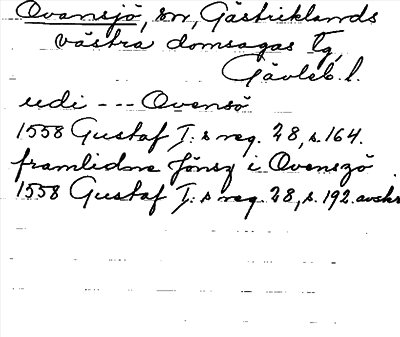 Ovansjö, sn, Gästriklands
västra domsagas tg,
Gävleb. l.
udi --- Ovensö
1558 Gustaf I:s reg. 28, s. 164.
framlidne Jönsz i Ovenszö
1558 Gustaf I:s reg. 28, s. 192. avskr.